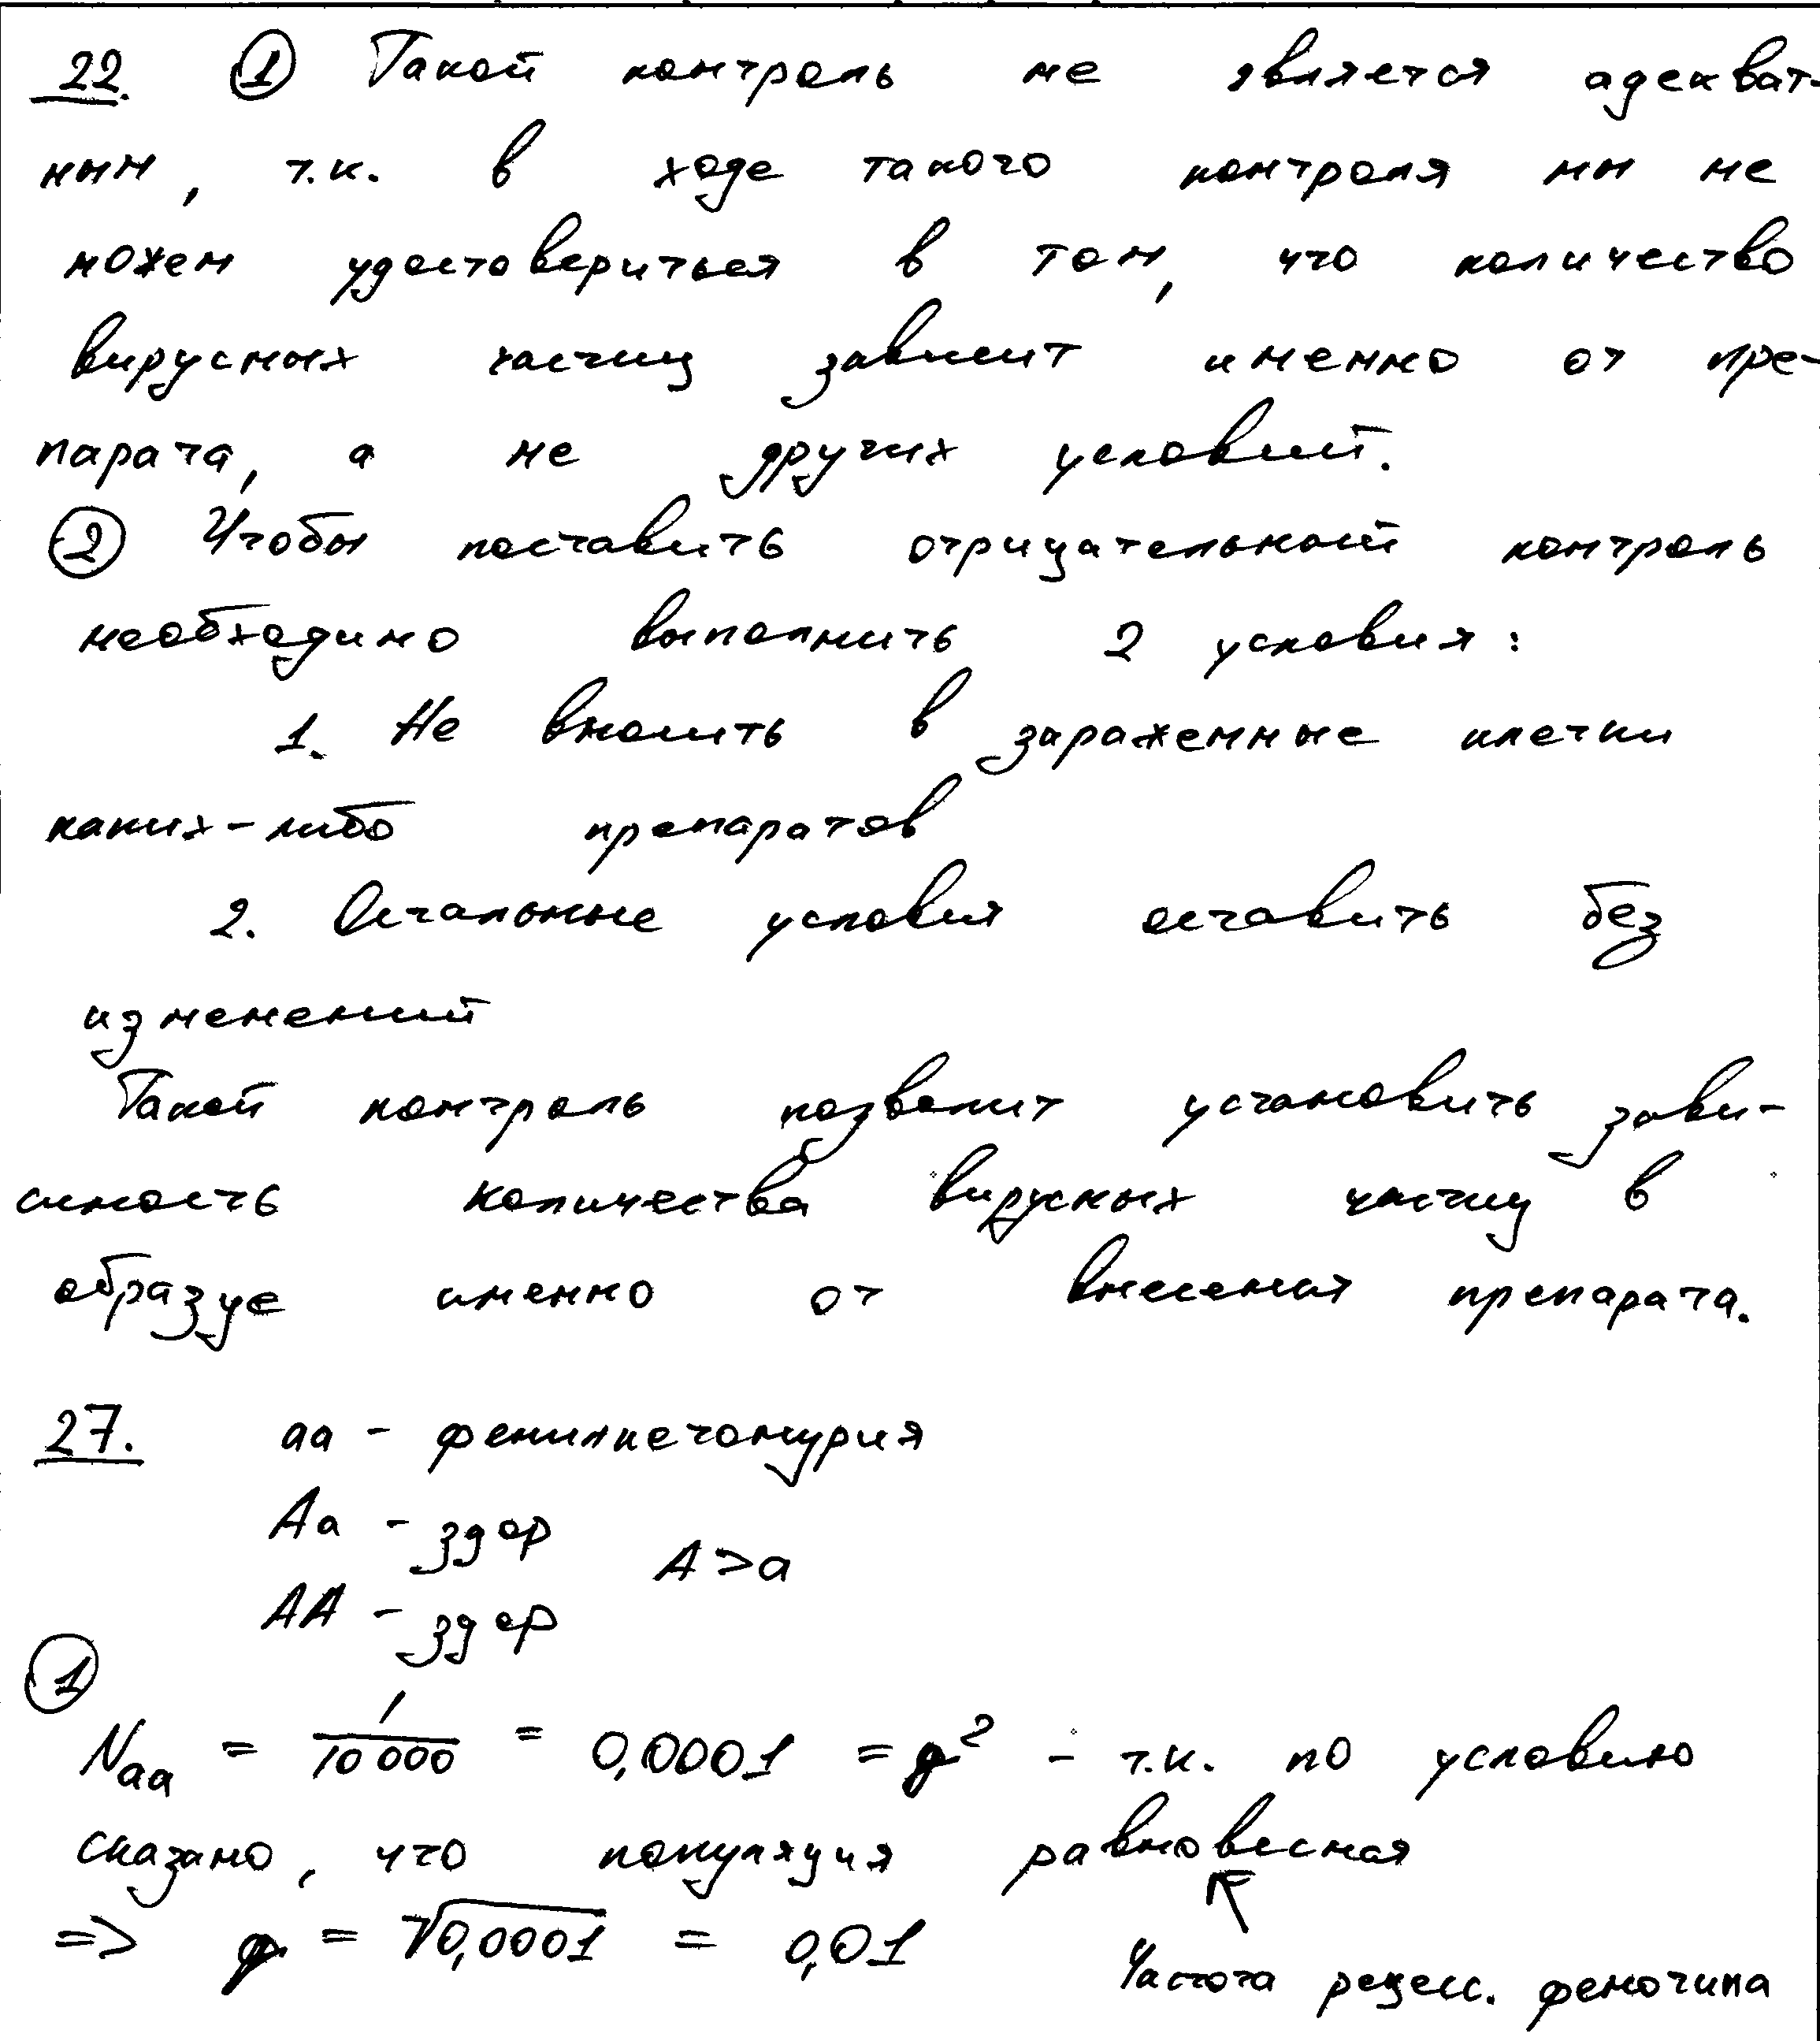 22. ① Такой контроль не является адекват-
ным, т.к. в ходе такого контроля мы не
можем удостовериться в том, что количество
вирусных частиц зависит именно от пре-
парата, а не других условий.
② Чтобы поставить отрицательной контроль
необходимо выполнить 2 условия:
1. Не вносить в зараженные клетки
каких-либо препаратов
2. Остальные условия оставить без
изменений
Такой контроль позволит установить зави-
симость количества вирусных частиц в
образце именно от внесения препарата.
27. aa - фенилкетонурия
Aa - здор
A > a
AA - здор
①
Naa = 1/10 000 = 0,0001 = q² - т.к. по условию
сказано, что популяция равновесная
=> q = √0,0001 = 0,01
Частота рецесс. фенотипа